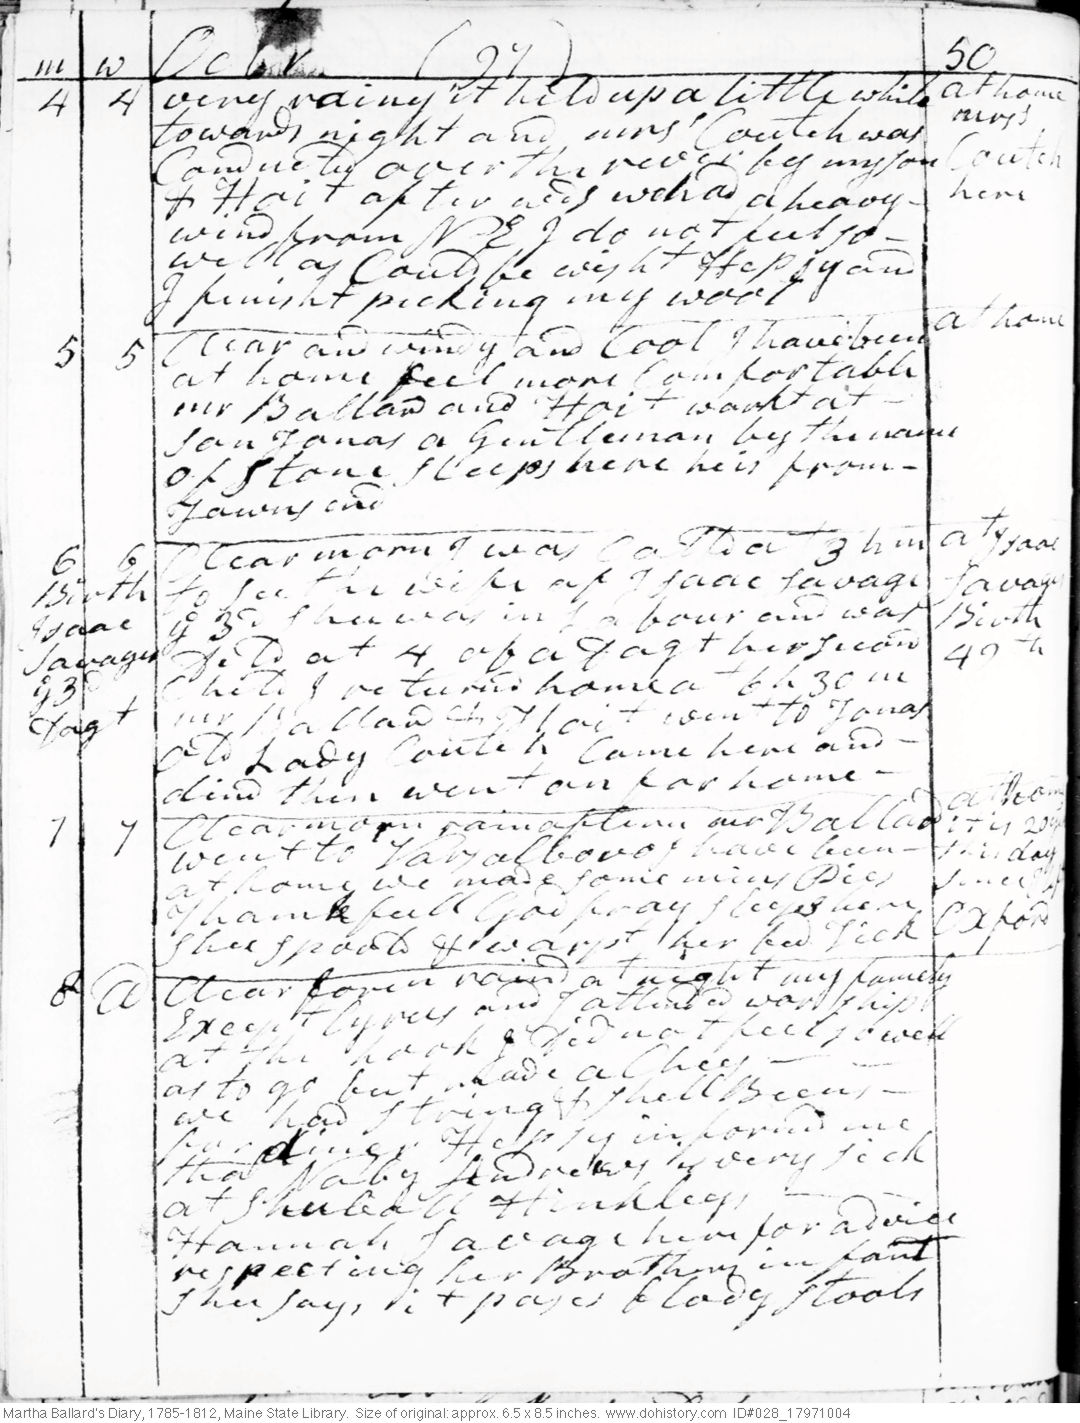 m w Octbr (97) 50
4 4 very rainy it held up a little while at home
towards night and mrs Coutch was mrs
Conducted over the rever by my son Coutch
& Hait after wds we had a heavy - here
wind from N E I do not feel so -
well as Could be wisht Hepsy and
I finisht picking my wool
5 5 Clear and windy and Cool I have been at home
at home feel more Comfortable
mr Ballard and Hait workt at -
son Jonas a Gentleman by the name
of Stone sleeps here he is from -
Townsend
6 6 Clear morn I was Calld at 3 h m at Isaac
Birth to see the wife of Isaac Savage Savages
Isaac ye 3d shee was in Labour and was Birth
Savages Deld at 4 of a Dagt her secon 49th
ye 3d Child I returnd home at 6 h 30 m
Dagt mr Ballard & Hait went to Jonas
old Lady Coutch Came here and -
dind then went on for home -
7 7 Clear morn rain aftern mr Ballard at home
went to Varsalboro I have been - it is 20 years
at home we made some mins Pies this day
Thankfull Godfray sleeps here since I left
shee spoold & warpt her bed Tick Oxford
8 @ Clear foren raind at night my family
Except Cyrus and I attended worship
at the hook I Did not feel so well
as to go but made a Chees -
we had string & shell Beens -
for diner Hepsy informd me
that Naby Andrews is very sick
at Shuball Hinkleys -
Hannah Savage here for advice
respecting her Brothers infant
shee says it pases blody stools
Martha Ballard's Diary, 1785-1812, Maine State Library. Size of original: approx. 6.5 x 8.5 inches. www.dohistory.com ID#028_17971004